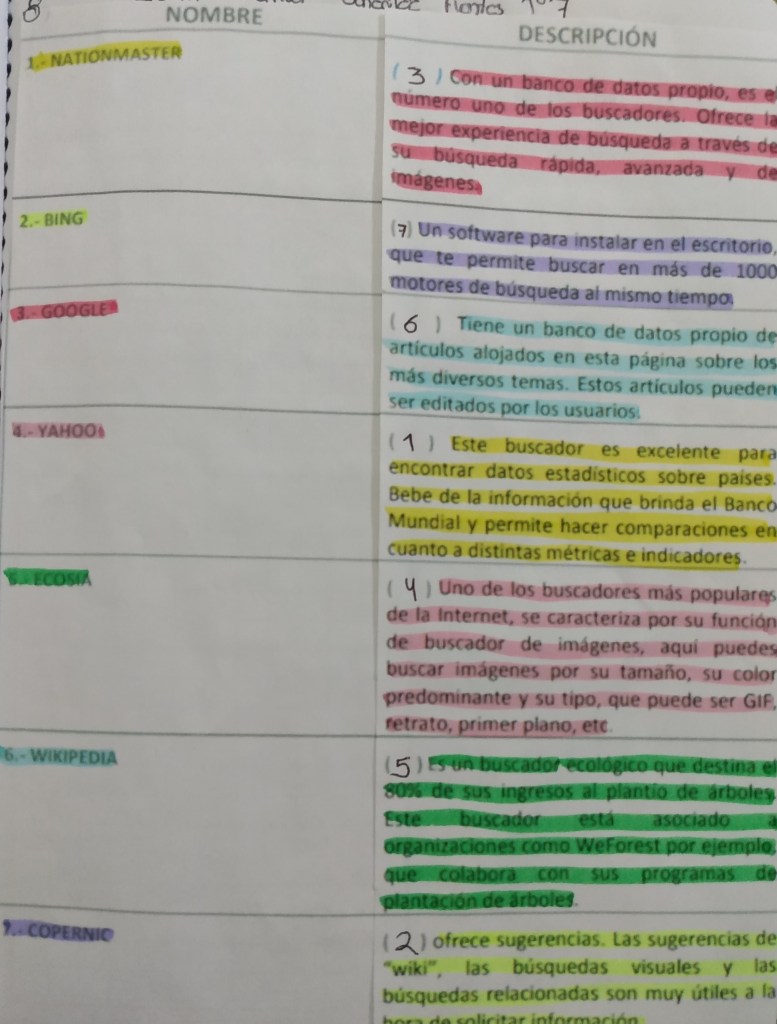 8
González Fierros 1º.7
NOMBRE
DESCRIPCIÓN
1.- NATIONMASTER
( 3 ) Con un banco de datos propio, es el
número uno de los buscadores. Ofrece la
mejor experiencia de búsqueda a través de
su búsqueda rápida, avanzada y de
imágenes.
2.- BING
(7) Un software para instalar en el escritorio,
que te permite buscar en más de 1000
motores de búsqueda al mismo tiempo.
3.- GOOGLE
( 6 ) Tiene un banco de datos propio de
artículos alojados en esta página sobre los
más diversos temas. Estos artículos pueden
ser editados por los usuarios.
4.- YAHOO
( 1 ) Este buscador es excelente para
encontrar datos estadísticos sobre países.
Bebe de la información que brinda el Banco
Mundial y permite hacer comparaciones en
cuanto a distintas métricas e indicadores.
5.- ECOSIA
( 4 ) Uno de los buscadores más populares
de la Internet, se caracteriza por su función
de buscador de imágenes, aquí puedes
buscar imágenes por su tamaño, su color
predominante y su tipo, que puede ser GIF,
retrato, primer plano, etc.
6.- WIKIPEDIA
(5) Es un buscador ecológico que destina el
80% de sus ingresos al plantío de árboles.
Este buscador está asociado a
organizaciones como WeForest por ejemplo,
que colabora con sus programas de
plantación de árboles.
7.- COPERNIC
(2) ofrece sugerencias. Las sugerencias de
"wiki", las búsquedas visuales y las
búsquedas relacionadas son muy útiles a la
hora de solicitar información